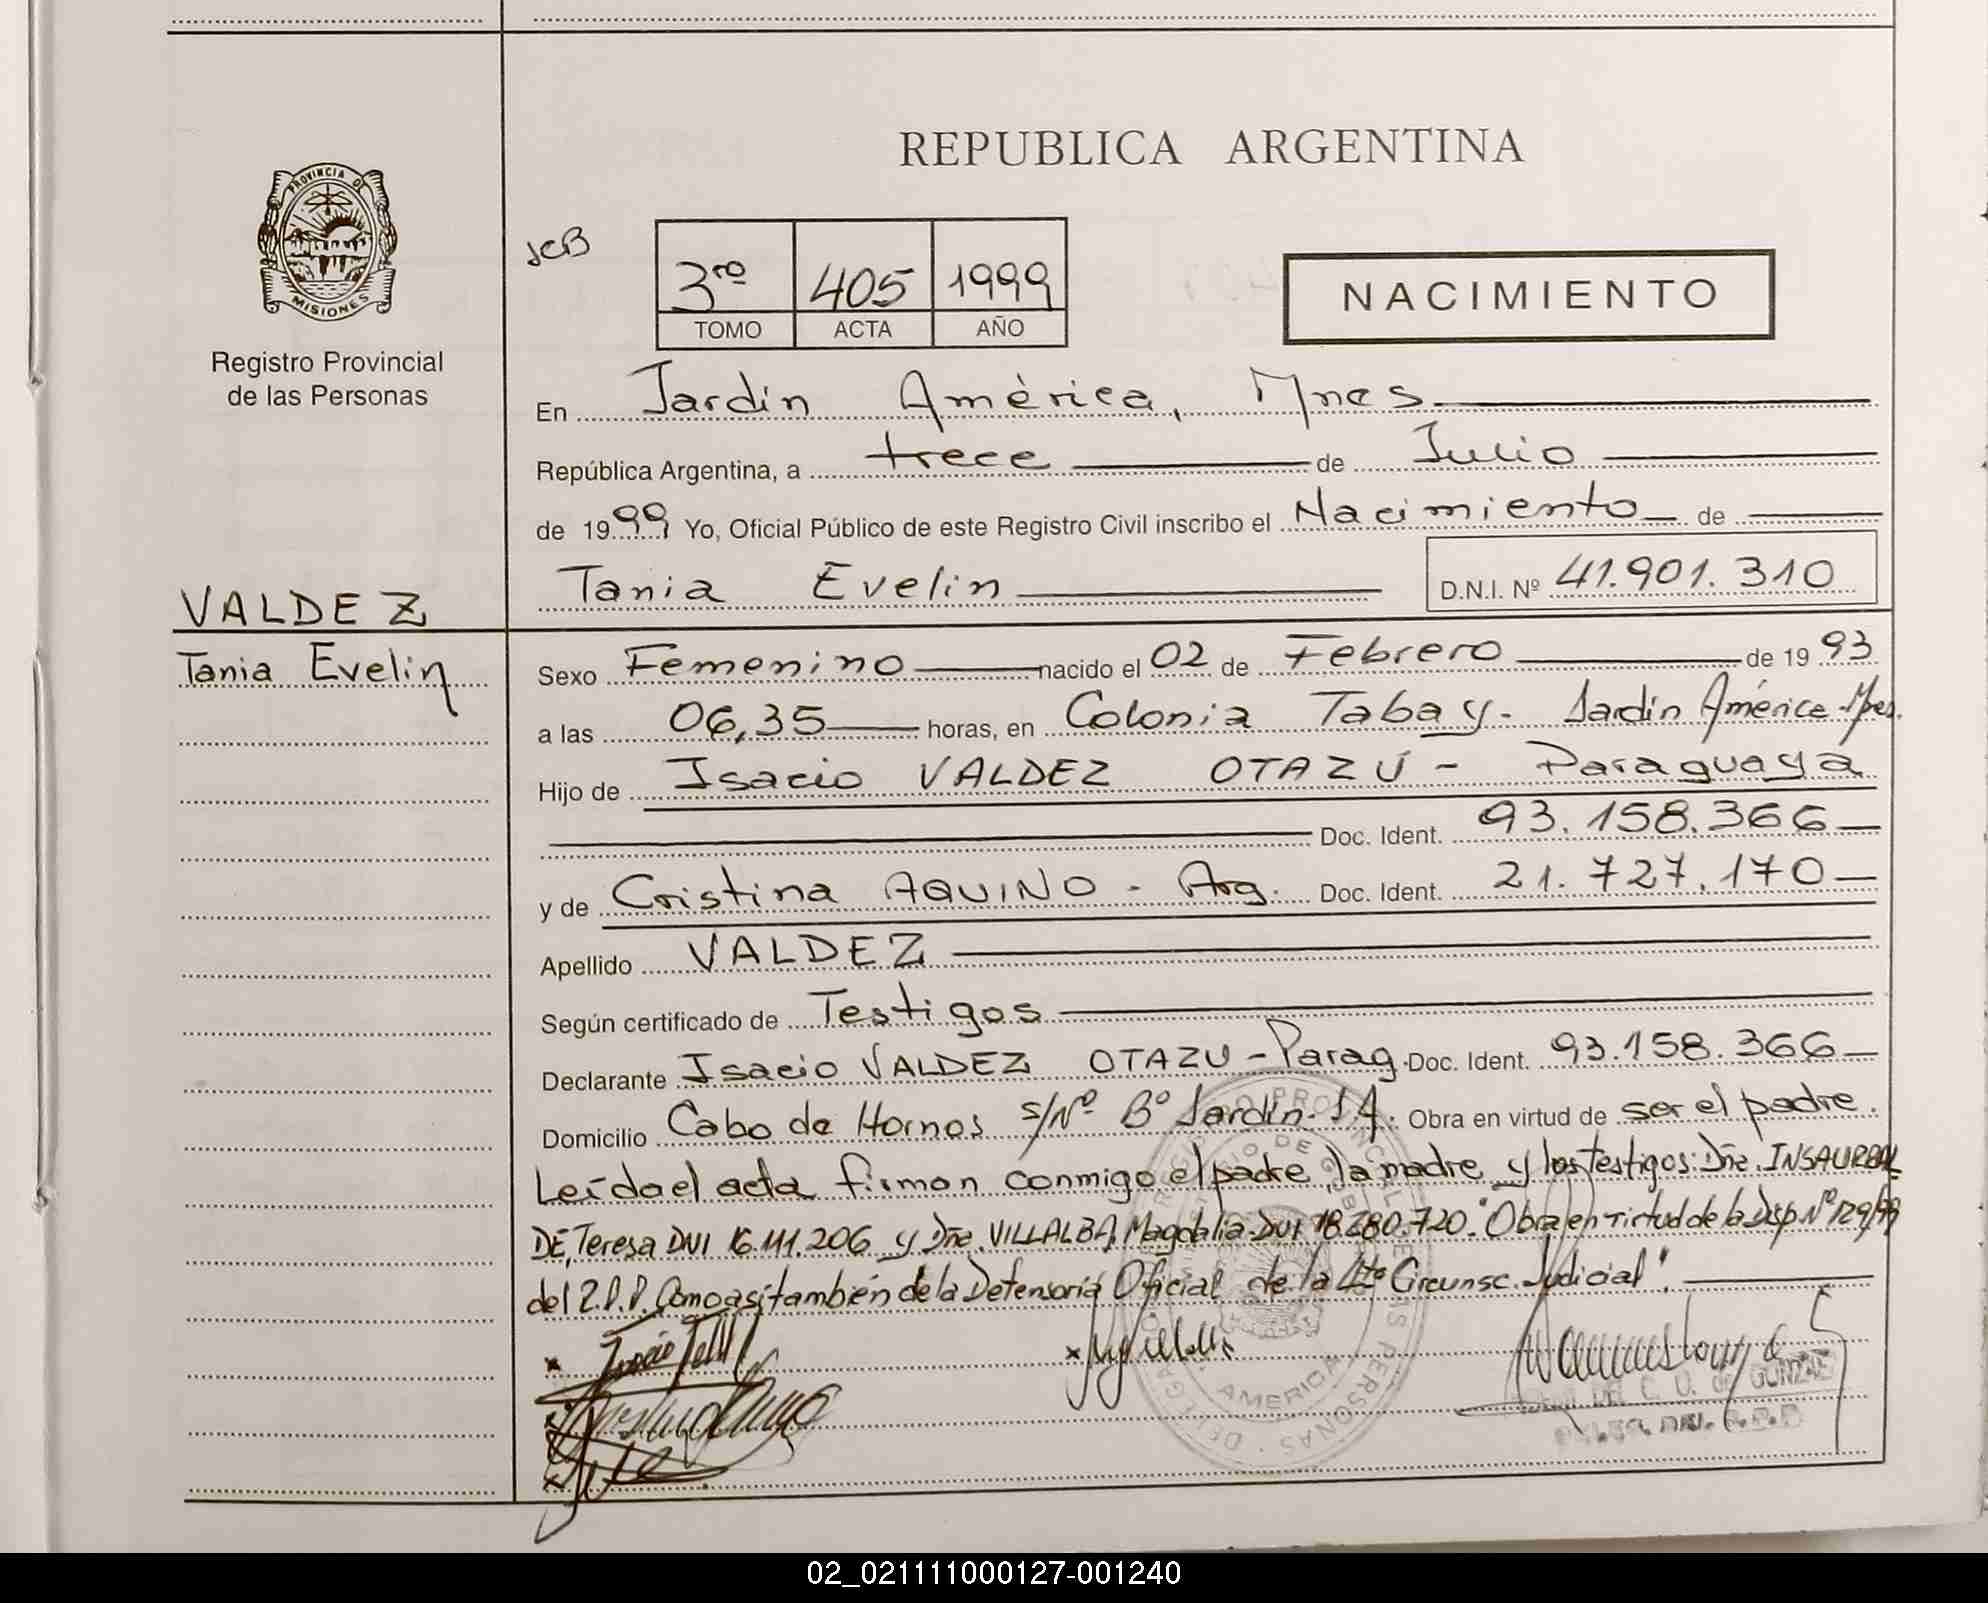 REPUBLICA ARGENTINA
PROVINCIA DE
MISIONES
Registro Provincial
de las Personas
JCB
3ro 405 1999
TOMO ACTA AÑO
NACIMIENTO
En Jardín América, Mnes
República Argentina, a trece de Julio
de 1999 Yo, Oficial Público de este Registro Civil inscribo el Nacimiento de
Tania Evelin D.N.I. Nº 41.901.310
VALDEZ
Tania Evelin
Sexo Femenino nacido el 02 de Febrero de 1993
a las 06,35 horas, en Colonia Tabay - Jardín América - Mnes.
Hijo de Isacio VALDEZ OTAZÚ - Paraguaya
Doc. Ident. 93.158.366
y de Cristina AQUINO - Arg. Doc. Ident. 21.727.170
Apellido VALDEZ
Según certificado de Testigos
Declarante Isacio VALDEZ OTAZU - Parag. Doc. Ident. 93.158.366
Domicilio Cabo de Hornos s/Nº Bº Jardín - J.A. Obra en virtud de ser el padre.
Leída el acta firman conmigo el padre, la madre y los testigos: Dñe. INSAURRAL
DE, Teresa DNI 16.111.206 y Dñe. VILLALBA, Magdalia DNI 18.280.720. "Obra en virtud de la Disp. Nº 129/99
del R.P.P. Como así también de la Defensoría Oficial de la 4ta Circunsc. Judicial".
AMERICA
02_021111000127-001240